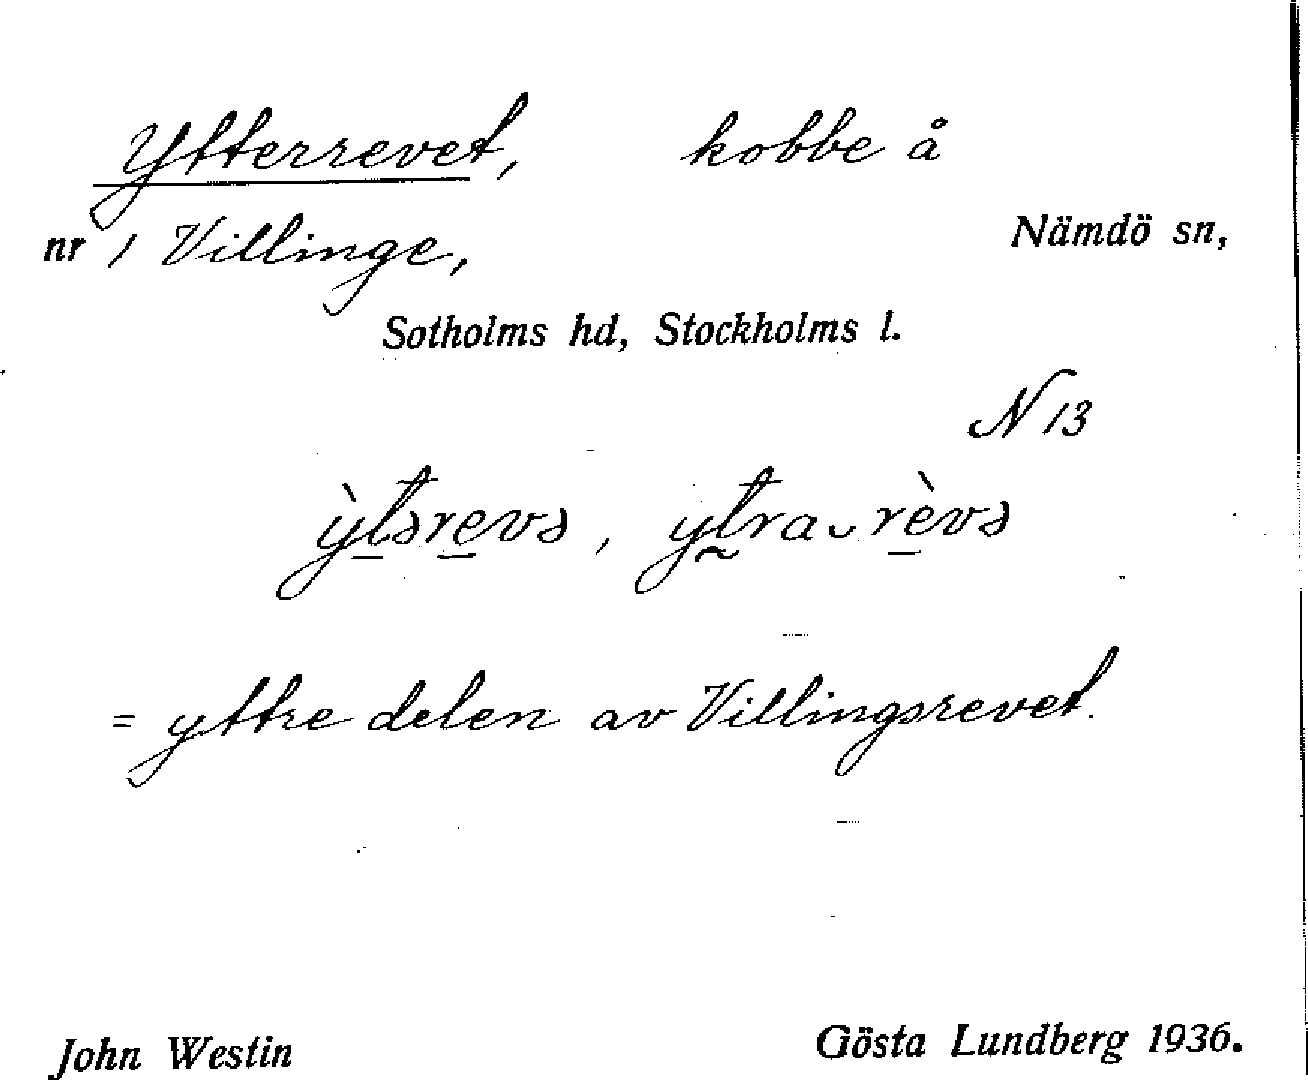 Ytterrevet, kobbe å
nr 1 Villinge, Nämdö sn,
Sotholms hd, Stockholms l.
N 13
ỳtərevə, ytra ̮ rèvə
= yttre delen av Villingsrevet.
John Westin Gösta Lundberg 1936.